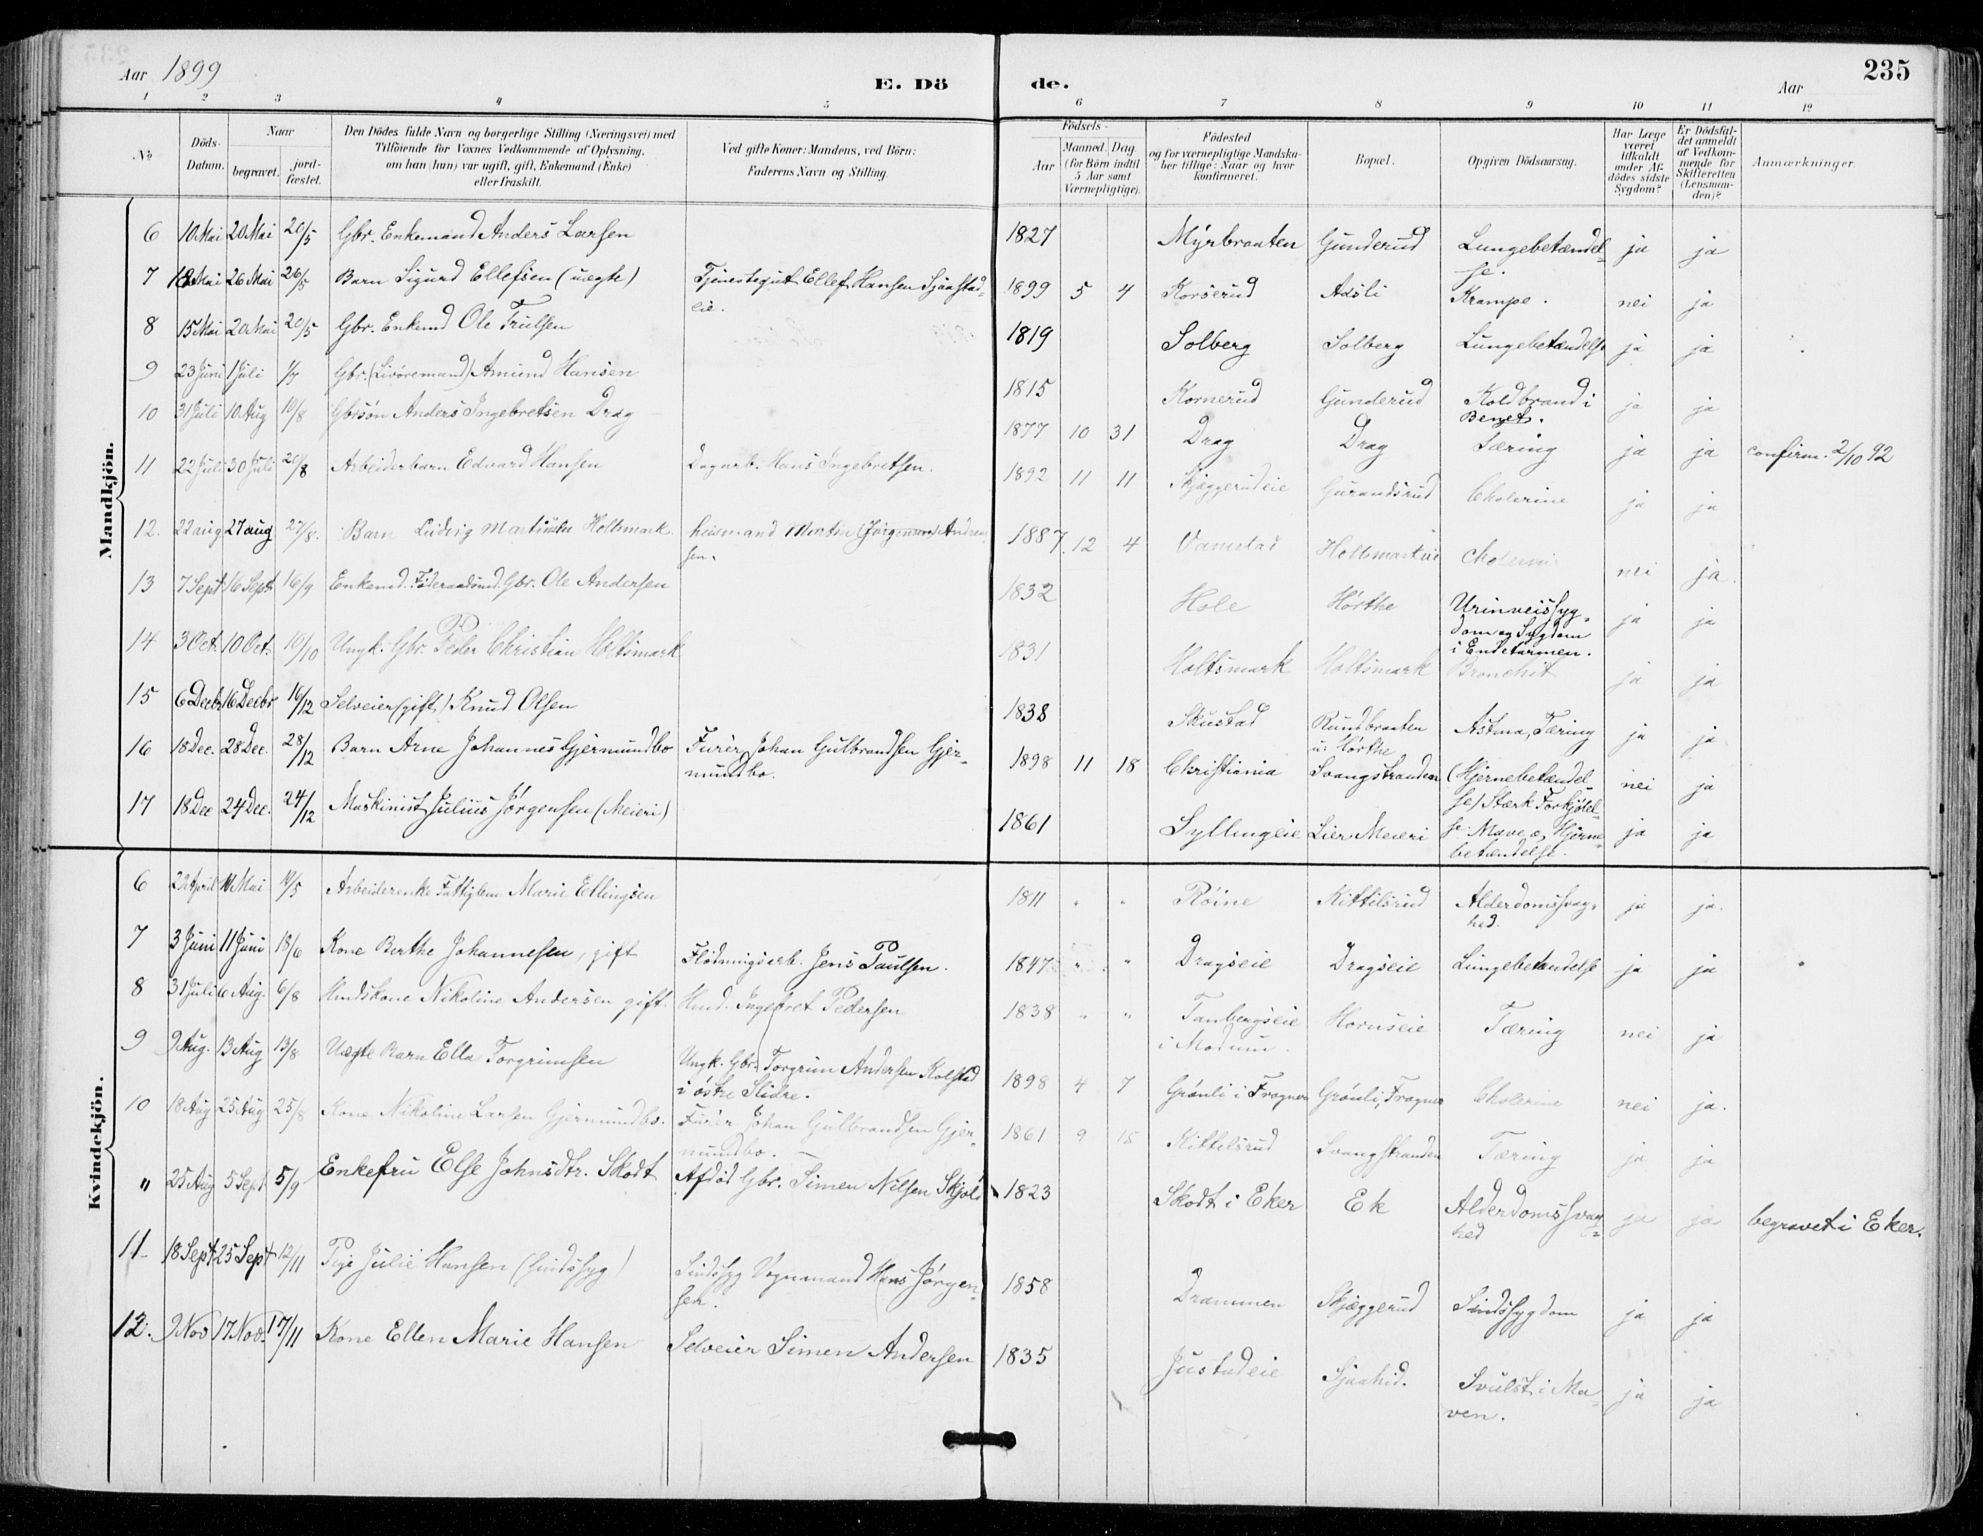 Aar 1899 E. Dö de. Aar 235
1 2 3 4 5 6 7 8 9 10 11 12
No Döds-Datum. Naar begravet. jord-fæstet. Den Dödes fulde Navn og borgerlige Stilling (Næringsvei) med Tilföiende for Voxnes Vedkommende af Oplysning, om han (hun) var ugift, gift, Enkemand (Enke) eller fraskilt. Ved gifte Koner: Mandens, ved Börn: Faderens Navn og Stilling. Födsels- Aar Maaned. Dag (for Börn indtil 5 Aar samt Værnepligtige). Födested og for værnepligtige Mandska-ber tillige: Naar og hvor konfirmeret. Bopæl. Opgiven Dödsaarsag. Har Læge været tilkaldt under Af-dödes sidste Sygdom? Er Dödsfal-det anmeldt af Vedkom-mende for Skifteretten (Lensman-den)? Anmærkninger.
Mandkjön.
6 10 Mai 20 Mai 20/5 Gbr. Enkemand Anders Larsen 1827 Myrbraaten Gunderud Lungebetændel-se. ja ja
7 18 Mai 26 Mai 26/5 Barn Sigurd Ellefsen (uægte) Tjenestegut Ellef Hansen Sjaastad-eie. 1899 5 4 Korserud Aasli Krampe. nei ja
8 15 Mai 20 Mai 20/5 Gbr. Enkemd Ole Trulsen 1819 Solberg Solberg Lungebetændelse ja ja
9 23 Juni 1 Juli 1/7 Gbr. (Livöremand) Amund Hansen 1815 Kornerud Gunderud Koldbrand i Benet. ja ja
10 31 Juli 10 Aug 10/8 Gbrsön Anders Ingebretsen Drag 1877 10 31 Drag Drag Tæring ja ja confirm. 2/10 92
11 22 Juli 30 Juli 20/8 Arbeiderbarn Edvard Hansen Dagarb. Hans Ingebretsen. 1892 11 11 Skjæggerudeie Gurandsrud Cholerine ja ja
12. 22 aug 27 aug 27/8. Barn Ludvig Martinsen Holtsmark husmand Martin (Jörgensen) Andreas-sen. 1887 12 4 Vamstad Holtsmarkeie nei ja.
13 7 Sept 16 Sept 16/9 Enkemd. Föderaadsmd. Gbr. Ole Andersen 1832 Hole Hörthe Urinveissyg-dom og Sygdom i Endetarmen. ja ja
14 3 Oct. 10 Oct. 10/10 Ungk. Gbr. Peder Christian Holtsmark 1831 Holtsmark Holtsmark Bronchit ja ja
15 6 Decbr 16 Decbr 16/12 Selveier (gift) Knud Olsen 1838 Skustad Rundbraaten u: Hörthe Astma, Tæring ja ja
16 18 Dec. 28 Dec. 28/12 Barn Arne Johannes Gjermundbo Furér Johan Gulbrandsen Gjer-mundbo. 1898 11 18 Christiania Svangstranden (Hjernebetændel-se) Stærk Forkjölel-se nei ja
17 18 Dec 24 Dec. 24/12 Maskinist Julius Jörgensen (Meieri) 1861 Syllingeie Lier Meieri Mave o, Hjerne-betændelse. ja ja
Kvindekjön.
6 29 April 14 Mai 14/5 Arbeiderenke Fattiglem Marie Ellingsen 1811 " " Röine Kittilsrud Alderdomssvag-hed. ja ja.
7 3 Juni 11 Juni 18/6 Kone Berthe Johannesen, gift Flödningsarb. Jens Paulsen. 1847 " " Dragseie Dragseie Lungebetændelse ja ja
8 31 Juli 6 Aug. 6/8 Hmdskone Nikoline Andersen gift Hmd. Ingebret Pedersen 1838 " " Tanbergseie i Modum. Hornseie Tæring nei ja
9 9 Aug. 13 Aug 13/8 Uægte Barn Ella Torgrimsen Ungk. Gbr. Torgrim Andersen Kolstad i östre Slidre. 1898 4 7 Grönli i Fragner Grönli, Fragner Cholerine nei ja.
10 18 Aug 25 Aug 25/8 Kone Nikoline Larsen Gjermundbo. Furér Johan Gulbrandsen Gjer-mundbo. 1861 9 15 Kittilsrud Svangstranden Tæring ja ja
" 25 Aug 5 Sept 5/9 Enkefru Else Johnsdtr. Skodt Afdöd Gbr. Simen Nilsen Skjöl 1823 Skodt i Eker Ek Alderdomssvag-hed ja ja begravet i Eker.
11 18 Sept 25 Sept 12/11 Pige Julie Hansen (sindssyg) Sindssyg Vognmand Hans Jörgen-sen. 1858 Drammen Skjæggerud Sindssygdom ja ja
12. 9 Nov 17 Nov. 17/11 Kone Ellen Marie Hansen Selveier Simen Andersen 1835 Justadeie Sjaahid. Svulst i Ma-ven. ja ja